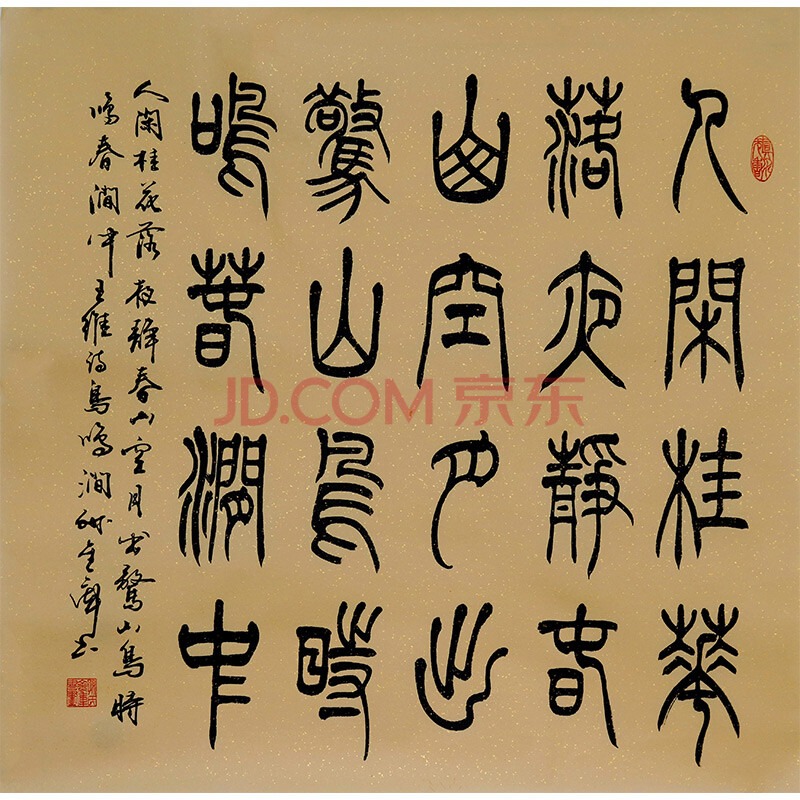 人閑桂華
落夜靜春
山空月出
驚山鳥時
鳴春澗中
人閑桂花落夜靜春山空月出驚山鳥時
鳴春澗中王維詩鳥鳴澗
JD.COM 京东